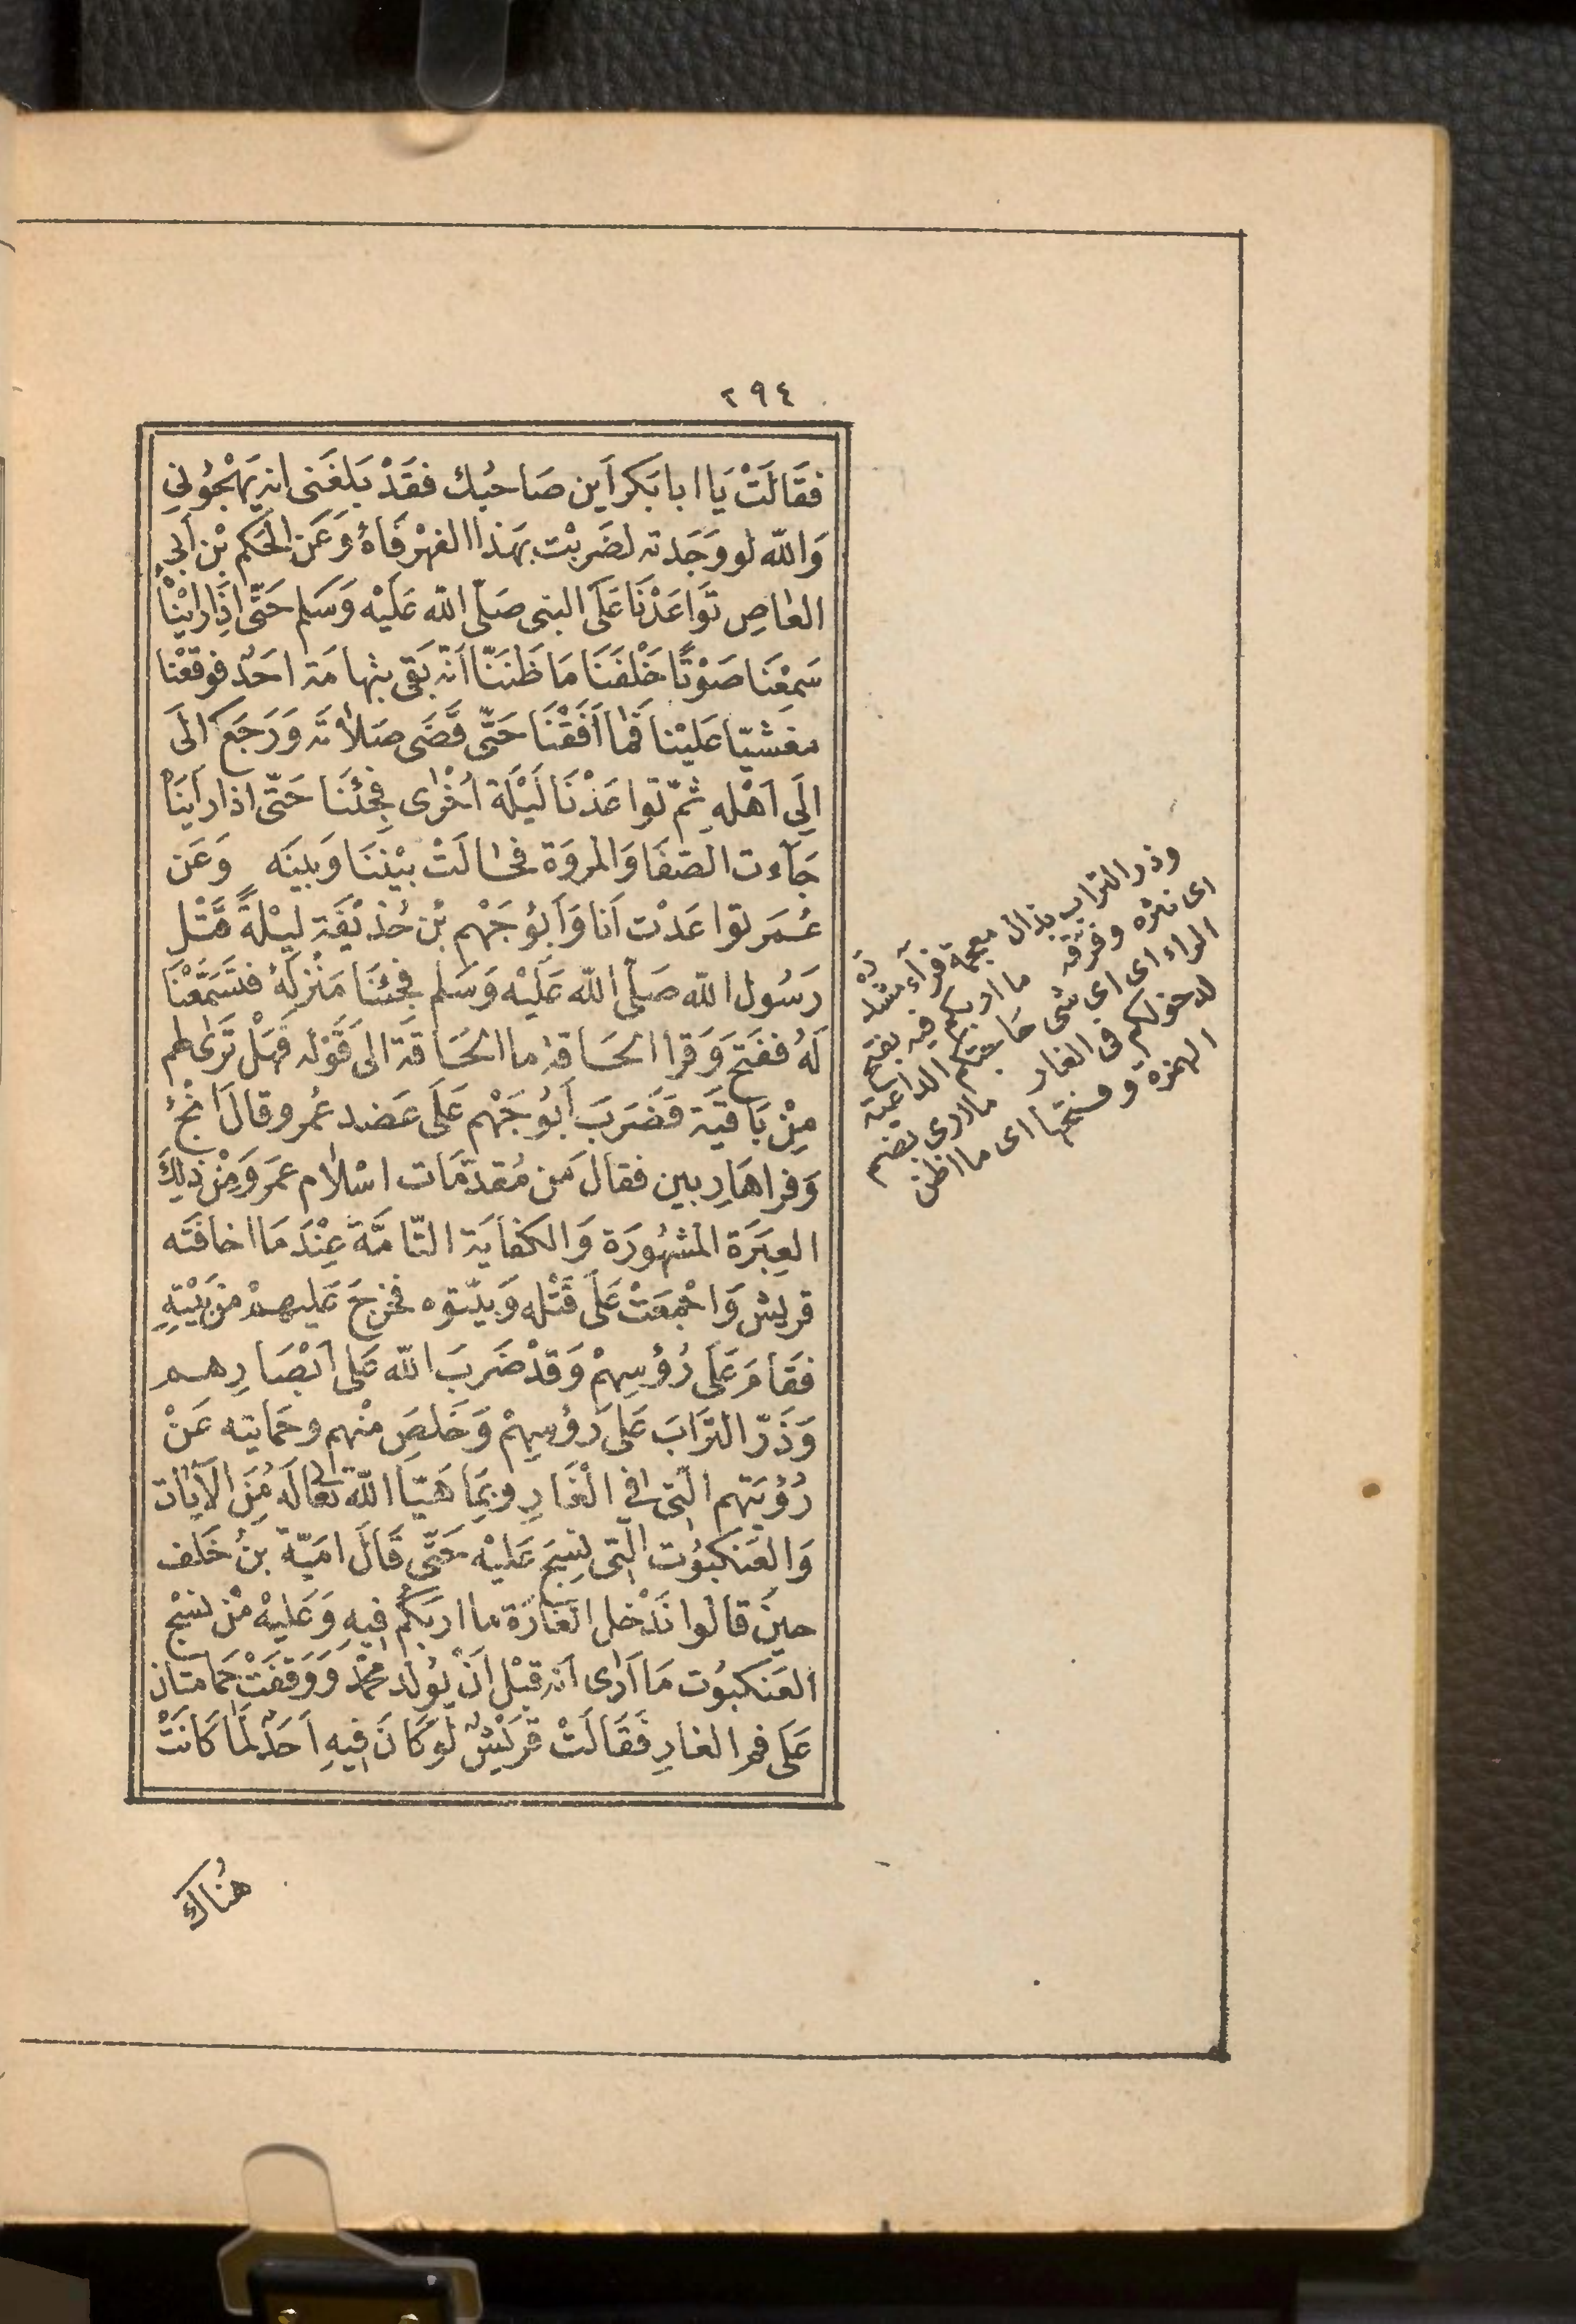 ٢٩٤
فَقَالَتْ يَا ابا بَكر اَين صَاحبُك فقَدْ بَلغَنى انه يَهْجُونِي
وَالله لو وَجَدته لضَربْت بهَذا الفهْر فَاهُ وَعَن الحَكم بْن اَبى
العٰاصِ تَوَاعَدْنَا عَلَى النبى صَلّى الله عَلَيْه وَسَلم حَتّى اذَا رايْنَاْ
سَمِعْنَا صَوْتًا خَلْفَنَا مَا ظَنَنّا اَنّه بَقى بتهامَة احَدٌ فوقعْنا
مغشيّا عَليْنا فَمٰا اَفَقْنَا حَتّى قَضَى صَلاٰتَه وَرَجَعَ الَى
اِلَى اَهْله ثمّ تواعَدْنَا لَيْلَة اُخْرٰى فجئنَا حَتّى اذا راَينَاْ
جَآءت الصّفَا وَالمروَة فحٰالَتْ بيْننَا وَبينَه وَعَن
عُمَر تواعَدْت اَنا وَاَبُو جَهْم بْن حُذيْفَة لَيْلةً قَتْل
رَسُول الله صَلّى اللّه عَلَيْه وَسَلم فجئنَا مَنْزلَهُ فتَسَمَّعْنَا
لَهُ ففتَح وَقرا الحَاقة ما الحَاقة الى قَوْله فَهَلْ تَرٰى لهم
مِنْ بَاقيَة فضَرَبَ اَبُو جَهْم عَلَى عَضد عُمر وقالَ اَنْجُ
وَفرا هَاربين فقالَ مَن مُقدّمَات اسْلام عمَر وَمِنْ ذلِكَ
العِبَرَة المشهُورَة وَالكفَايَة التّامَّة عِنْدَ مَا اخافَتَه
قريش وَاجْمعَتْ عَلَى قَتْله وَبيّتوه فخرجَ عَليهمْ مِنْ بَيْتِهِ
فقَامَ عَلَى رُؤسِهِمْ وَقدْ ضَرَبَ الله عَلى اَبْصَارِهم
وَذَرّ الترَابَ عَلَى رَؤسِهِمْ وَخَلصَ منْهم وحمَايته عَنْ
رُؤيَتهم التّى فِي الْغَارِ وبمَا هَيّا اللّه تعَالى لَهُ مِنَ الاٰيات
وَالعَنكبُوت التّى نسجَ عَليْه حَتّى قَالَ اميّة بنُ خَلف
حينَ قالوا نَدْخل الغَارَة ما اربكُمْ فِيهِ وَعَليْه مِنْ نسْج
العَنكبُوت مَا اَرٰى اَنه قبْل اَنْ يُولَد محمّد وَوَقفَتْ حَمَامتَان
عَلَى فم الغارِ فَقَالَتْ قُرَيْشٌ لَوْ كَانَ فِيهِ اَحَدٌ لَمَا كَانَتْ
هُنَاكَ
وذر التراب بذال معجمة فراء مشددَة
اى نثره وفرقه ما اربكم فيه بفتح
الراء اى اي شى حاجتكم الداعية
لدخولكم فى الغار ما ارى بضم
الهمزة وفتحها اى ما اظن